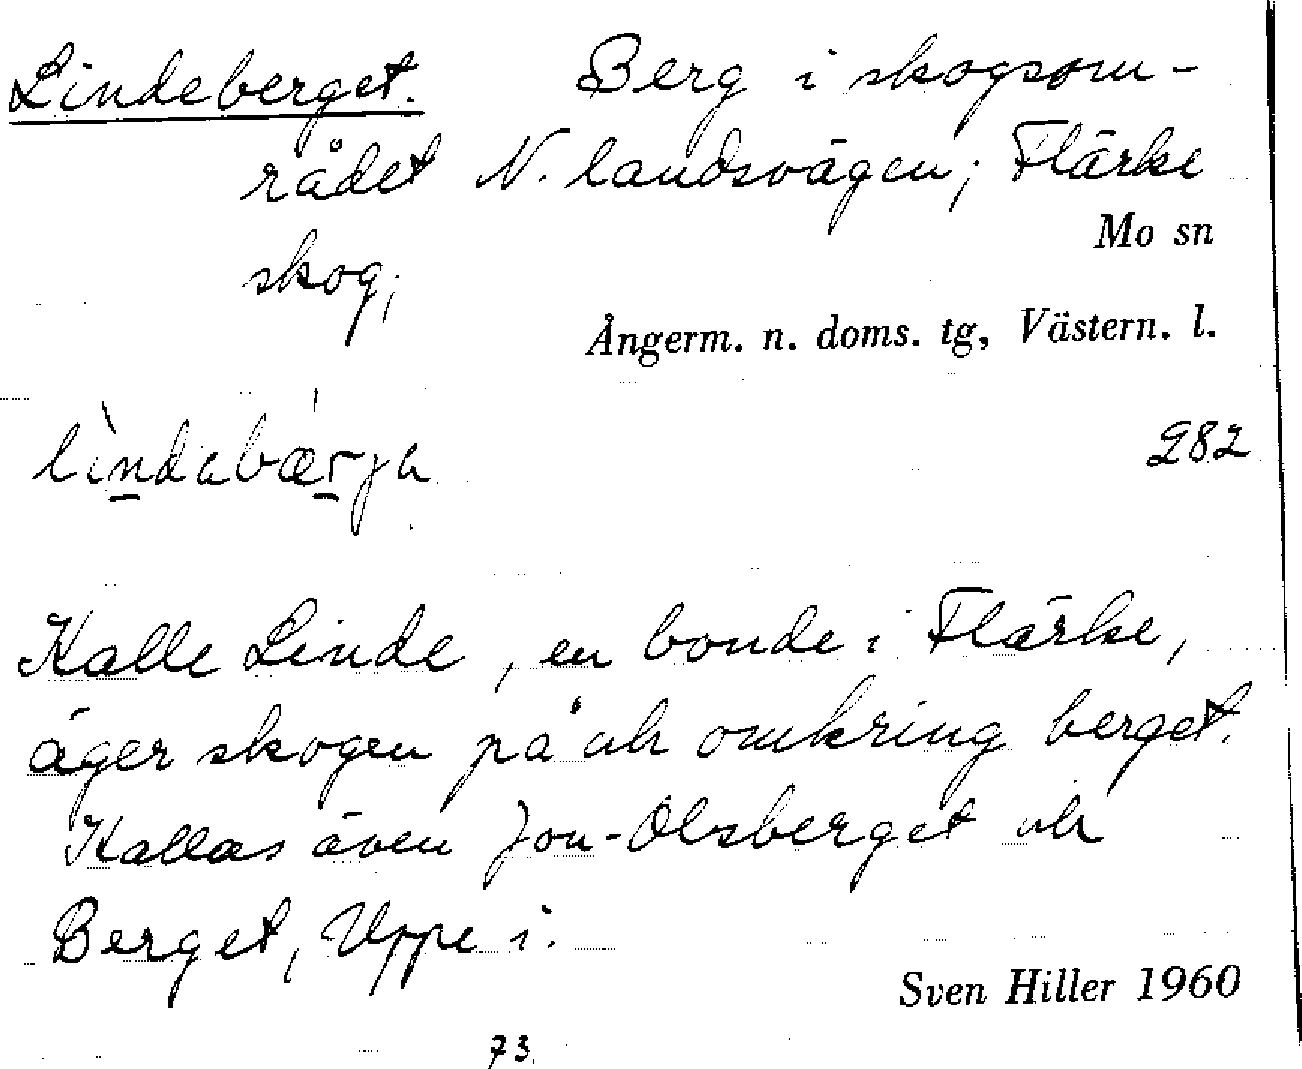 Lindeberget. Berg i skogsom-
rådet N. landsvägen; Flärke
Mo sn
skog;
Ångerm. n. doms. tg, Västern. l.
lìndabǽrja
282
Kalle Linde, en bonde i Flärke,
äger skogen på och omkring berget.
Kallas även Jon-Olsberget och
Berget, Uppe i.
Sven Hiller 1960
73.